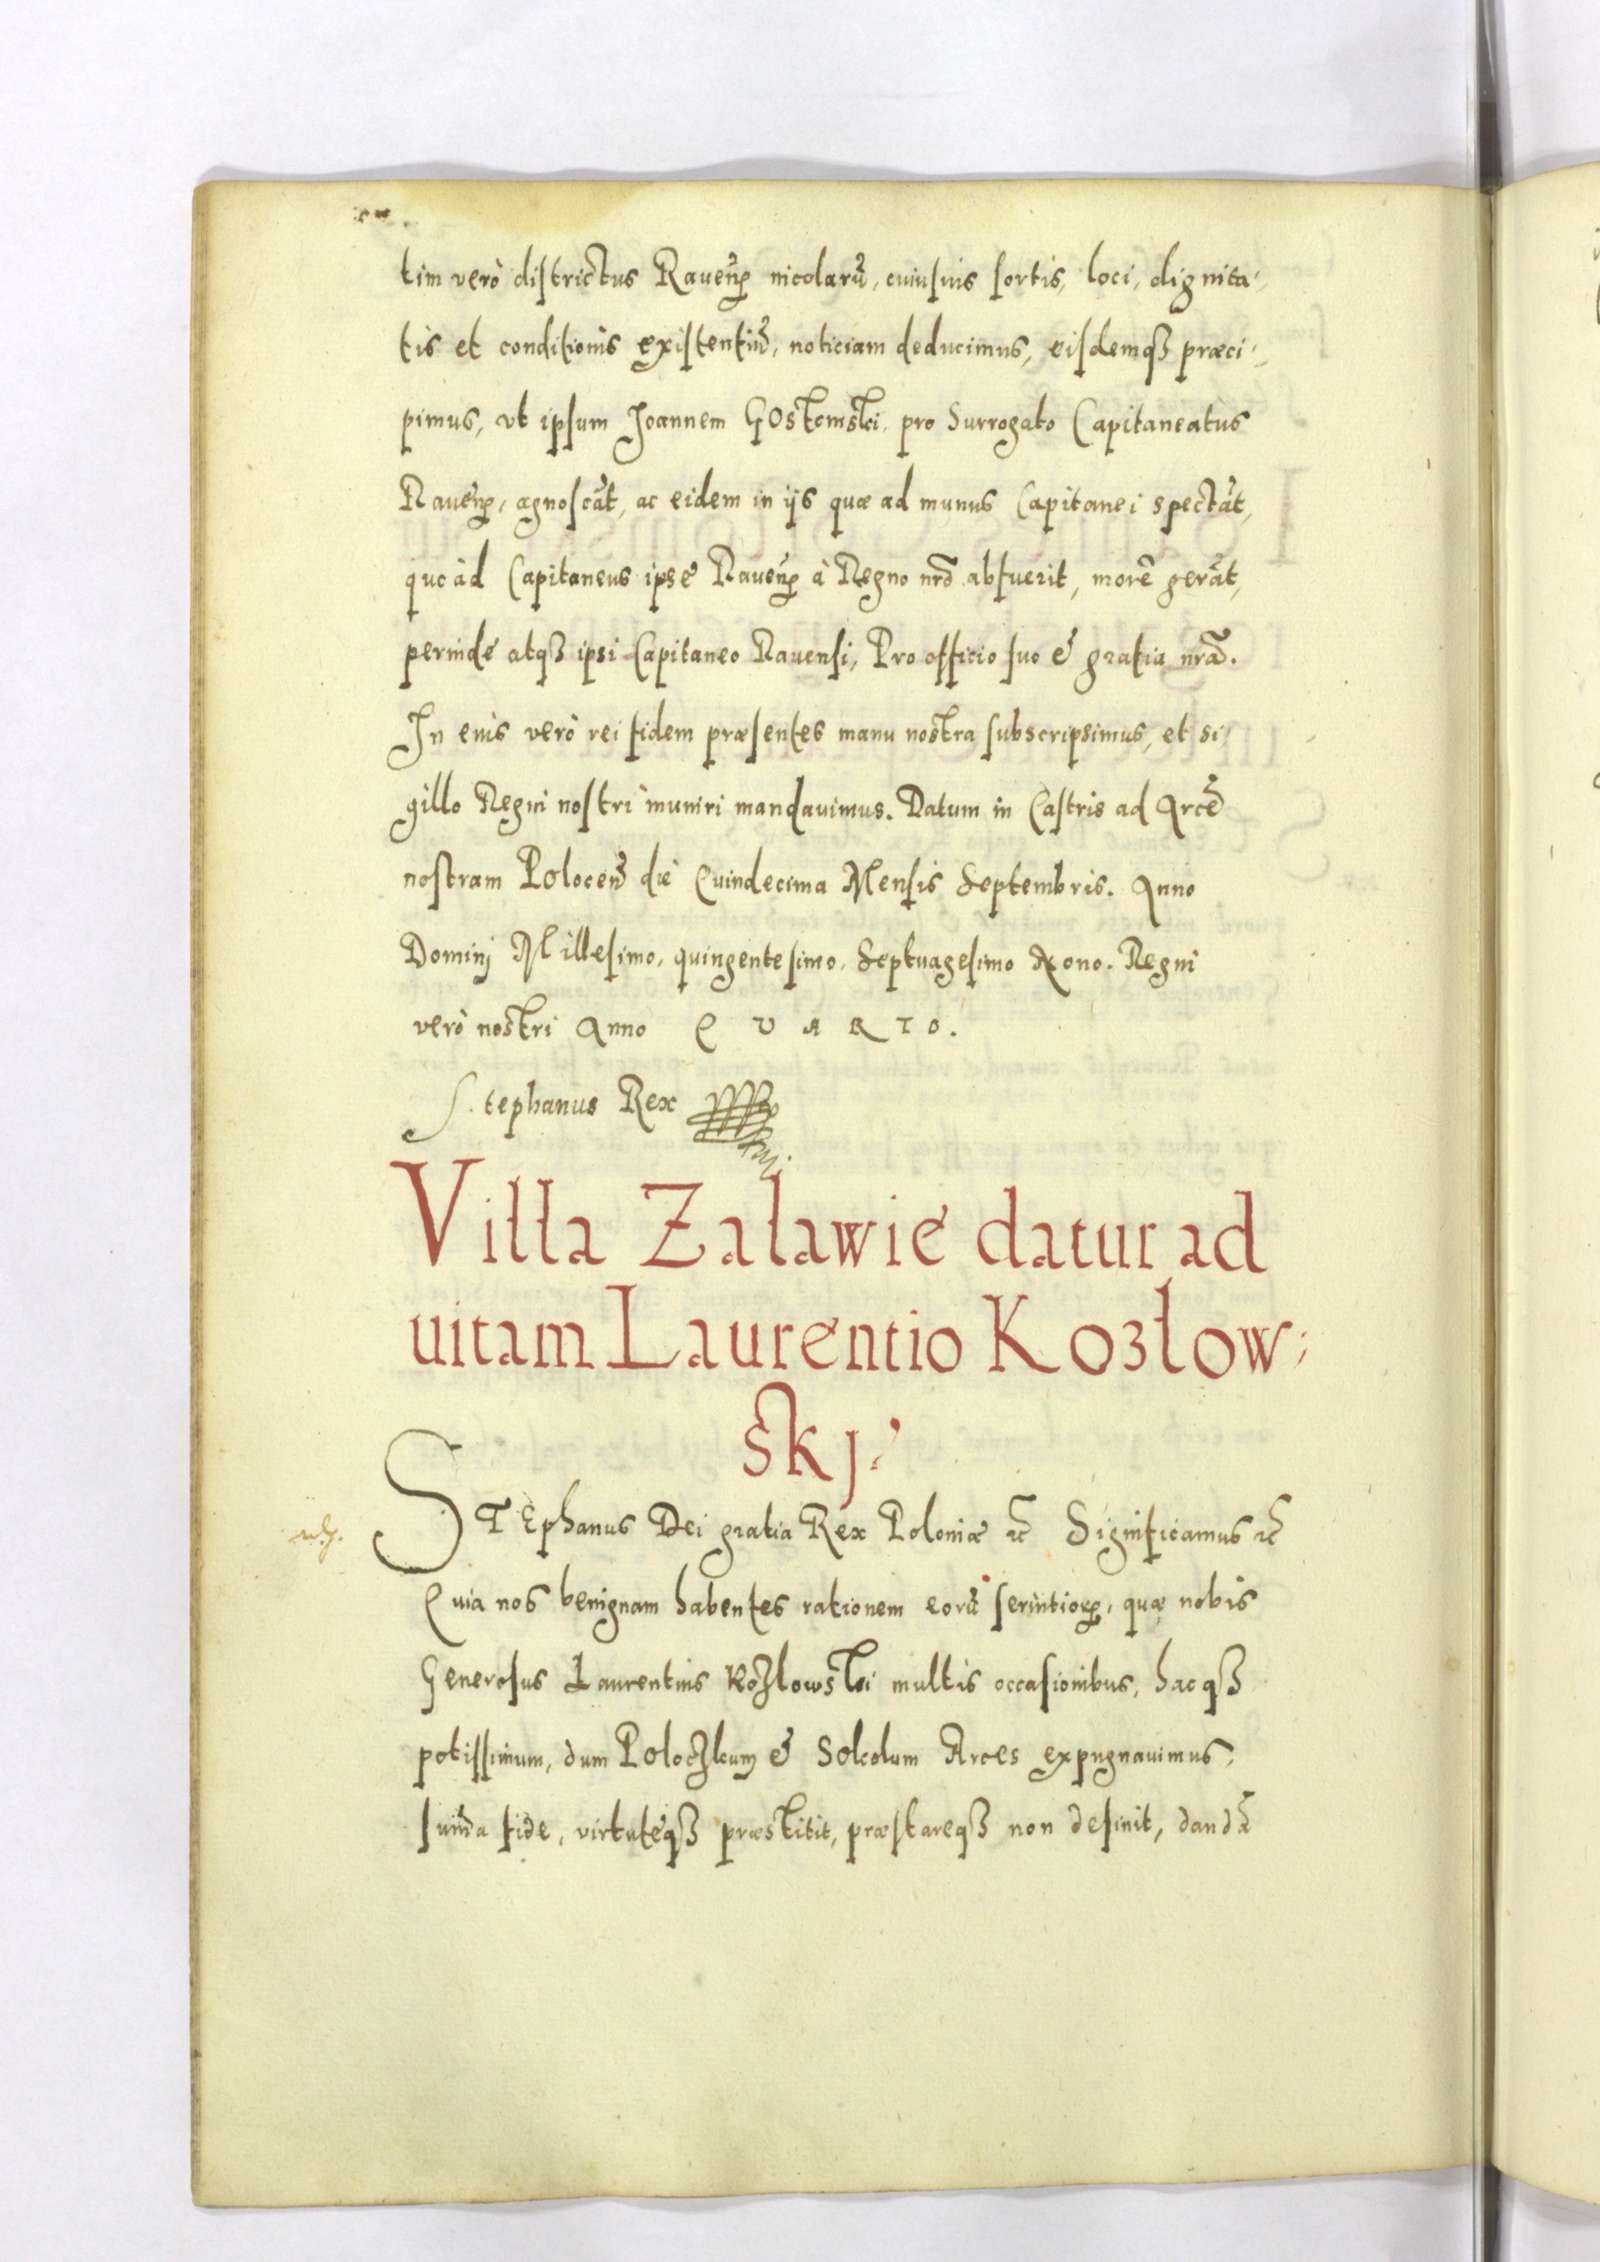 tim verò districtus Raveñ incolarũ, cuiusuis sortis, loci, dignita-
tis et conditionis existentiũ, noticiam deducimus, eisdemqꝫ præci-
pimus, vt ipsum Joannem GOstomski pro Surrogato Capitaneatus
Raueñ, agnoscãt, ac eidem in ijs quæ ad munus Capitanei spectãt,
quoàd Capitaneus ipse Raueñ à Regno nrõ abfuerit, morẽ gerãt,
perinde atqꝫ ipsi Capitaneo Rauensi, Pro officio suo & gratia nrã.
In cuius verò rei fidem præsentes manu nostra subscripsimus, et si-
gillo Regni nostri muniri mandauimus. Datum in Castris ad Arcẽ
nostram Poloceñ die Quindecima Mensis Septembris. Anno
Dominj Millesimo, quingentesimo, Septuagesimo Nono. Regni
verò nostri Anno QVARTO.
Stephanus Rex
Villa Zalawie datur ad
uitam Laurentio Kozłow-
skj.
STEphanus Dei gratia Rex Poloniæ &c̃ Significamus &c̃
Quia nos benignam habentes rationem eorũ seruitioꝝ, quæ nobis
Generosus Laurentius Kozlowski multis occasionibus, hacqꝫ
potissimum, dum Poloczkum & Sokolum Arces expugnauimus,
sum̃a fide, virtuteqꝫ præstitit, præstareqꝫ non desinit, dandã